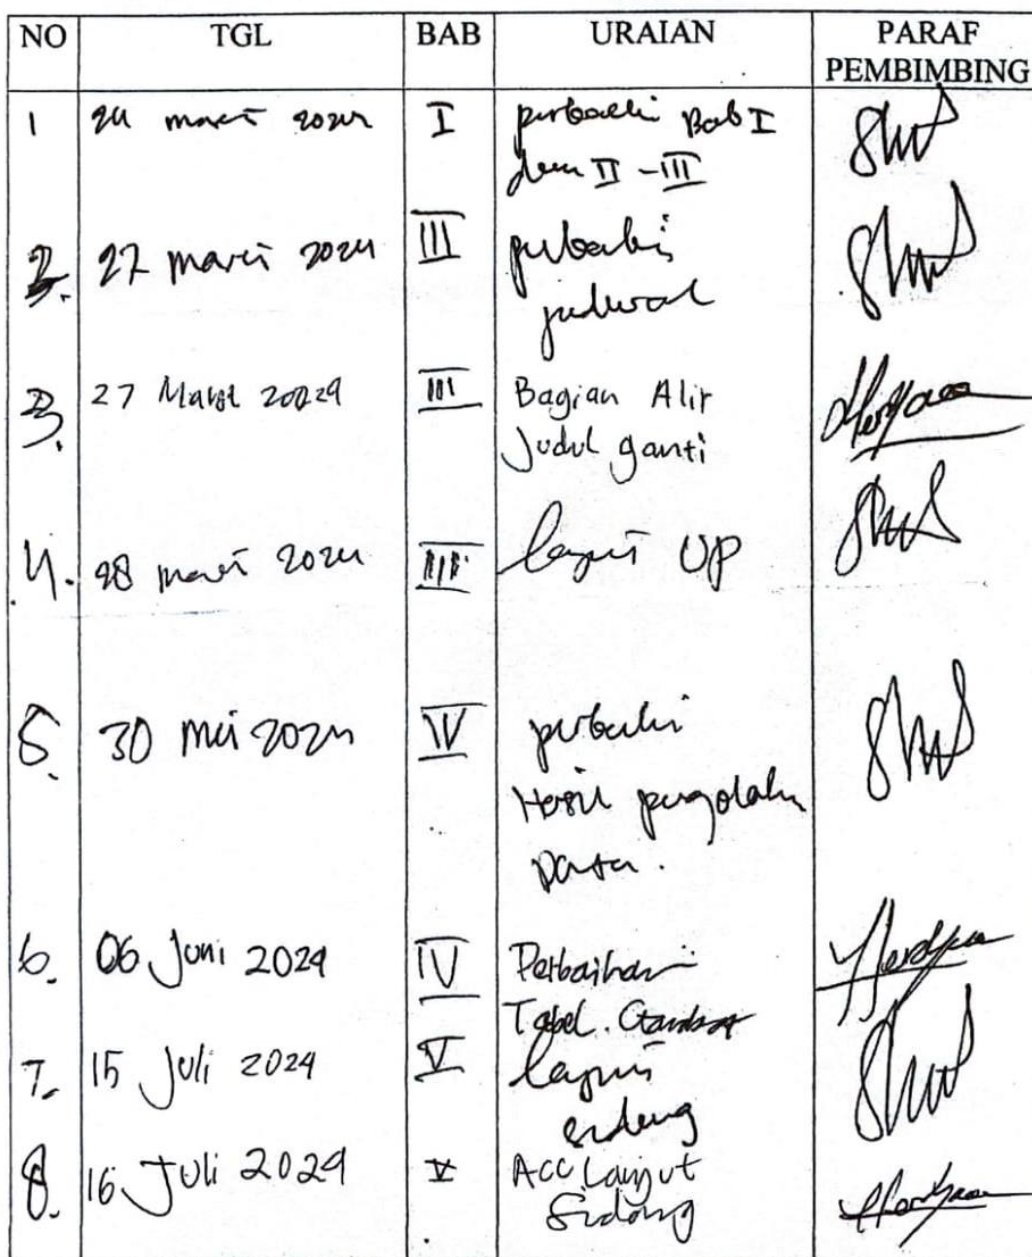 NO TGL BAB URAIAN PARAF
PEMBIMBING
1 24 maret 2024 I perbaiki Bab I
dan II - III
2. 27 maret 2024 III perbaiki
jadwal
3. 27 Maret 2024 III Bagian Alir
Judul ganti
4. 28 maret 2024 III lanjut UP
5. 30 mei 2024 IV perbaiki
Hasil pengolahan
Data.
6. 06 Juni 2024 IV Perbaikan
Tabel. Gambar
7. 15 Juli 2024 V lanjut
sidang
8. 16 Juli 2024 V Acc Lanjut
Sidang